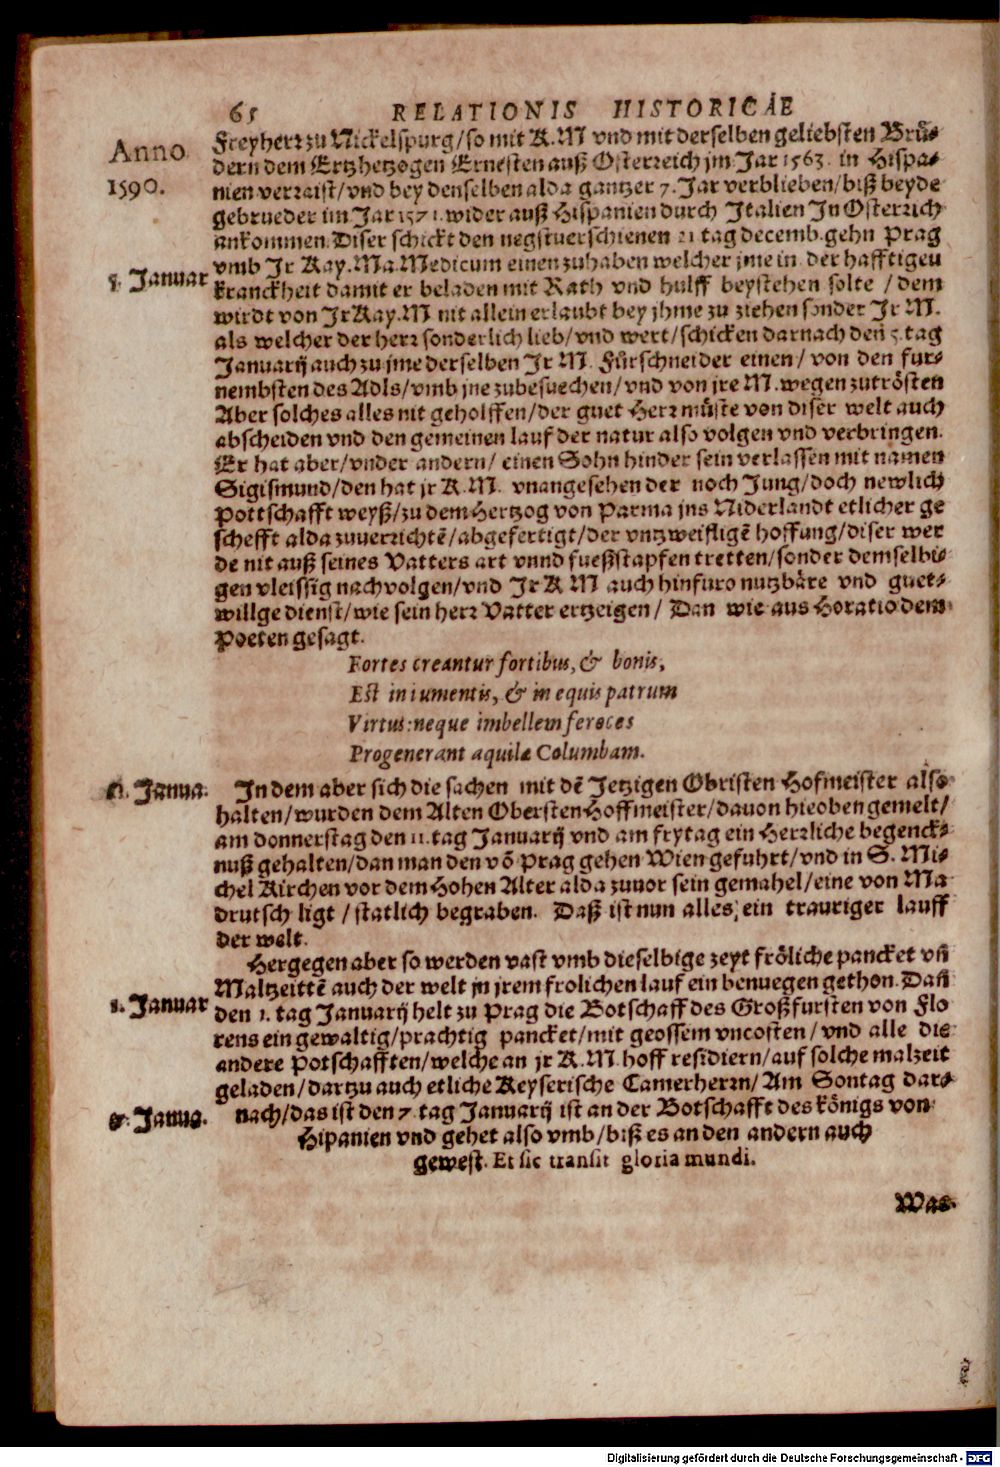 65 RELATIONIS HISTORICAE
Anno
1590.
Freyherr zu Nickelspurg/so mit K.M vnd mit derselben geliebsten Brü-
dern dem Ertzhetzogen Ernesten auß Osterreich jm Jar 1563. in Hispa-
nien verraist/vnd bey denselben alda gantzer 7. Jar verblieben/biß beyde
gebrueder im Jar 1571. wider auß Hispanien durch Italien In Osterrich
ankommen. Diser schickt den negstuerschienen 21 tag decemb. gehn Prag
vmb Jr Kay. Ma. Medicum einen zuhaben welcher jme in der hafftigen
5. Januar
kranckheit damit er beladen mit Rath vnd hulff beystehen solte / dem
wirdt von Jr Kay. M nit allein erlaubt bey jhme zu ziehen sonder Jr M.
als welcher der herr sonderlich lieb/vnd wert/schicken darnach den 5. tag
Januarij auch zu jme derselben Jr M. Fürschneider einen/ von den fur-
nembsten des Adls/vmb jne zubesuechen/vnd von jre M. wegen zutrösten
Aber solches alles nit geholffen/der guet Herr müste von diser welt auch
abscheiden vnd den gemeinen lauf der natur also volgen vnd verbringen.
Er hat aber/vnder andern/ einen Sohn hinder sein verlassen mit namen
Sigismund/den hat jr K.M. vnangesehen der noch Jung/doch newlich
Pottschafft weyß/zu dem Hertzog von Parma jns Niderlandt etlicher ge
schefft alda zuuerzichtē/abgefertigt/der vntzweifligē hoffung/diser wer
de nit auß seines Vatters art vnnd fueßstapfen tretten/sonder demselbi-
gen vleissig nachvolgen/vnd Jr K M auch hinfuro nutzbäre vnd guet-
willge dienst/wie sein herr Vatter ertzeigen/ Dan wie aus Horatio dem
Poeten gesagt.
Fortes creantur fortibus, & bonis,
Est in iumentis, & in equis patrum
Virtus: neque imbellem feroces
Progenerant aquilæ Columbam.
11. Janua.
In dem aber sich die sachen mit dē Jetzigen Obristen Hofmeister also
halten/wurden dem Alten Obersten Hoffmeister/dauon hieoben gemelt/
am donnerstag den 11. tag Januarij vnd am frytag ein Herzliche begenck-
nuß gehalten/dan man den vō Prag gehen Wien gefuhrt/vnd in S. Mi-
chel Kirchen vor dem Hohen Alter alda zuuor sein gemahel/eine von Ma
drutsch ligt / statlich begraben. Daß ist nun alles, ein trauriger lauff
der welt.
Hergegen aber so werden vast vmb dieselbige zeyt fröliche pancket vn̄
Maltzeittē auch der welt jn jrem frolichen lauf ein benuegen gethon. Dan̄
1. Januar
den 1. tag Januarij helt zu Prag die Botschaff des Großfursten von Flo
rens ein gewaltig/prachtig pancket/mit geossem vncosten/vnd alle die
andere Potschafften/welche an jr K.M. hoff residiern/auf solche malzeit
geladen/dartzu auch etliche Keyserische Camerherrn/Am Sontag dar-
7. Janua.
nach/das ist den 7. tag Januarij ist an der Botschafft des königs von
Hipanien vnd gehet also vmb/biß es an den andern auch
gewest. Et sic transit gloria mundi.
Was
Digitalisierung gefördert durch die Deutsche Forschungsgemeinschaft - DFG